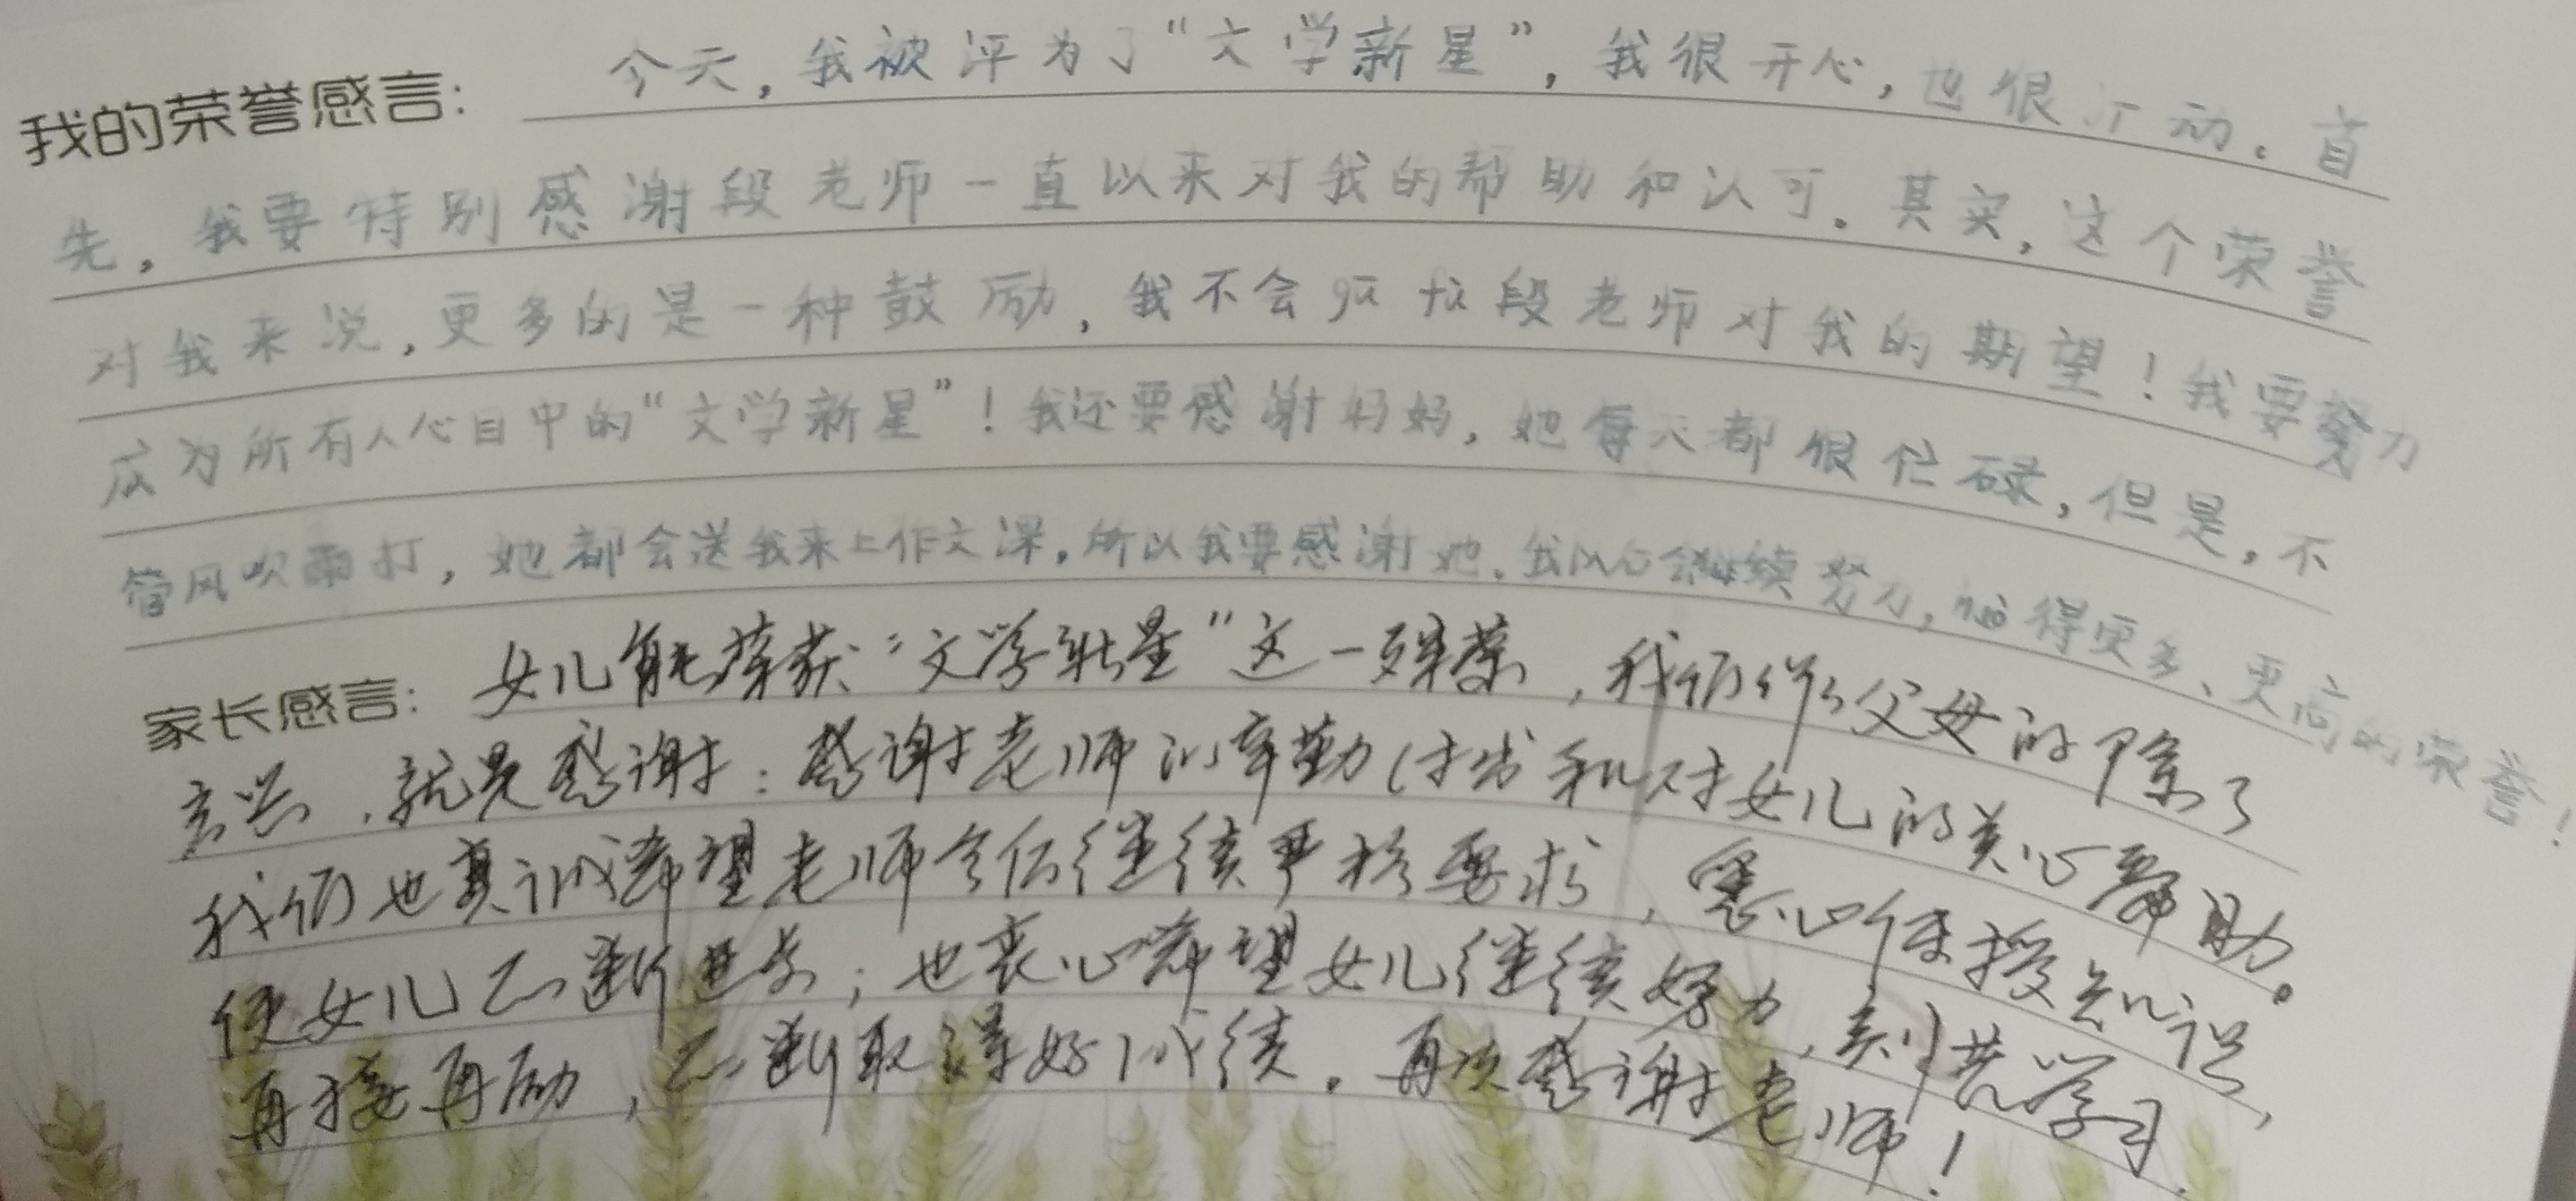 我的荣誉感言： 今天，我被评为了“文学新星”，我很开心，也很动。首
先，我要特别感谢段老师一直以来对我的帮助和认可。其实，这个荣誉
对我来说，更多的是一种鼓励，我不会段老师对我的期望！我要努力
成为所有人心目中的“文学新星”！我还要感谢妈妈，她每天都很忙碌，但是，不
管风吹雨打，她都会送我来上作文课。所以我要感谢她。我会继续努力，得更多、更高的荣誉！
家长感言： 女儿能荣获“文学新星”这一殊荣，我们作父母的除了
高兴，就是感谢：感谢老师的辛勤付出和对女儿的关心帮助。
我们也真诚希望老师今后继续严格要求，悉心传授知识，
使女儿不断进步；也衷心希望女儿继续努力，刻苦学习，
再接再励，不断取得好成绩。再次感谢老师！